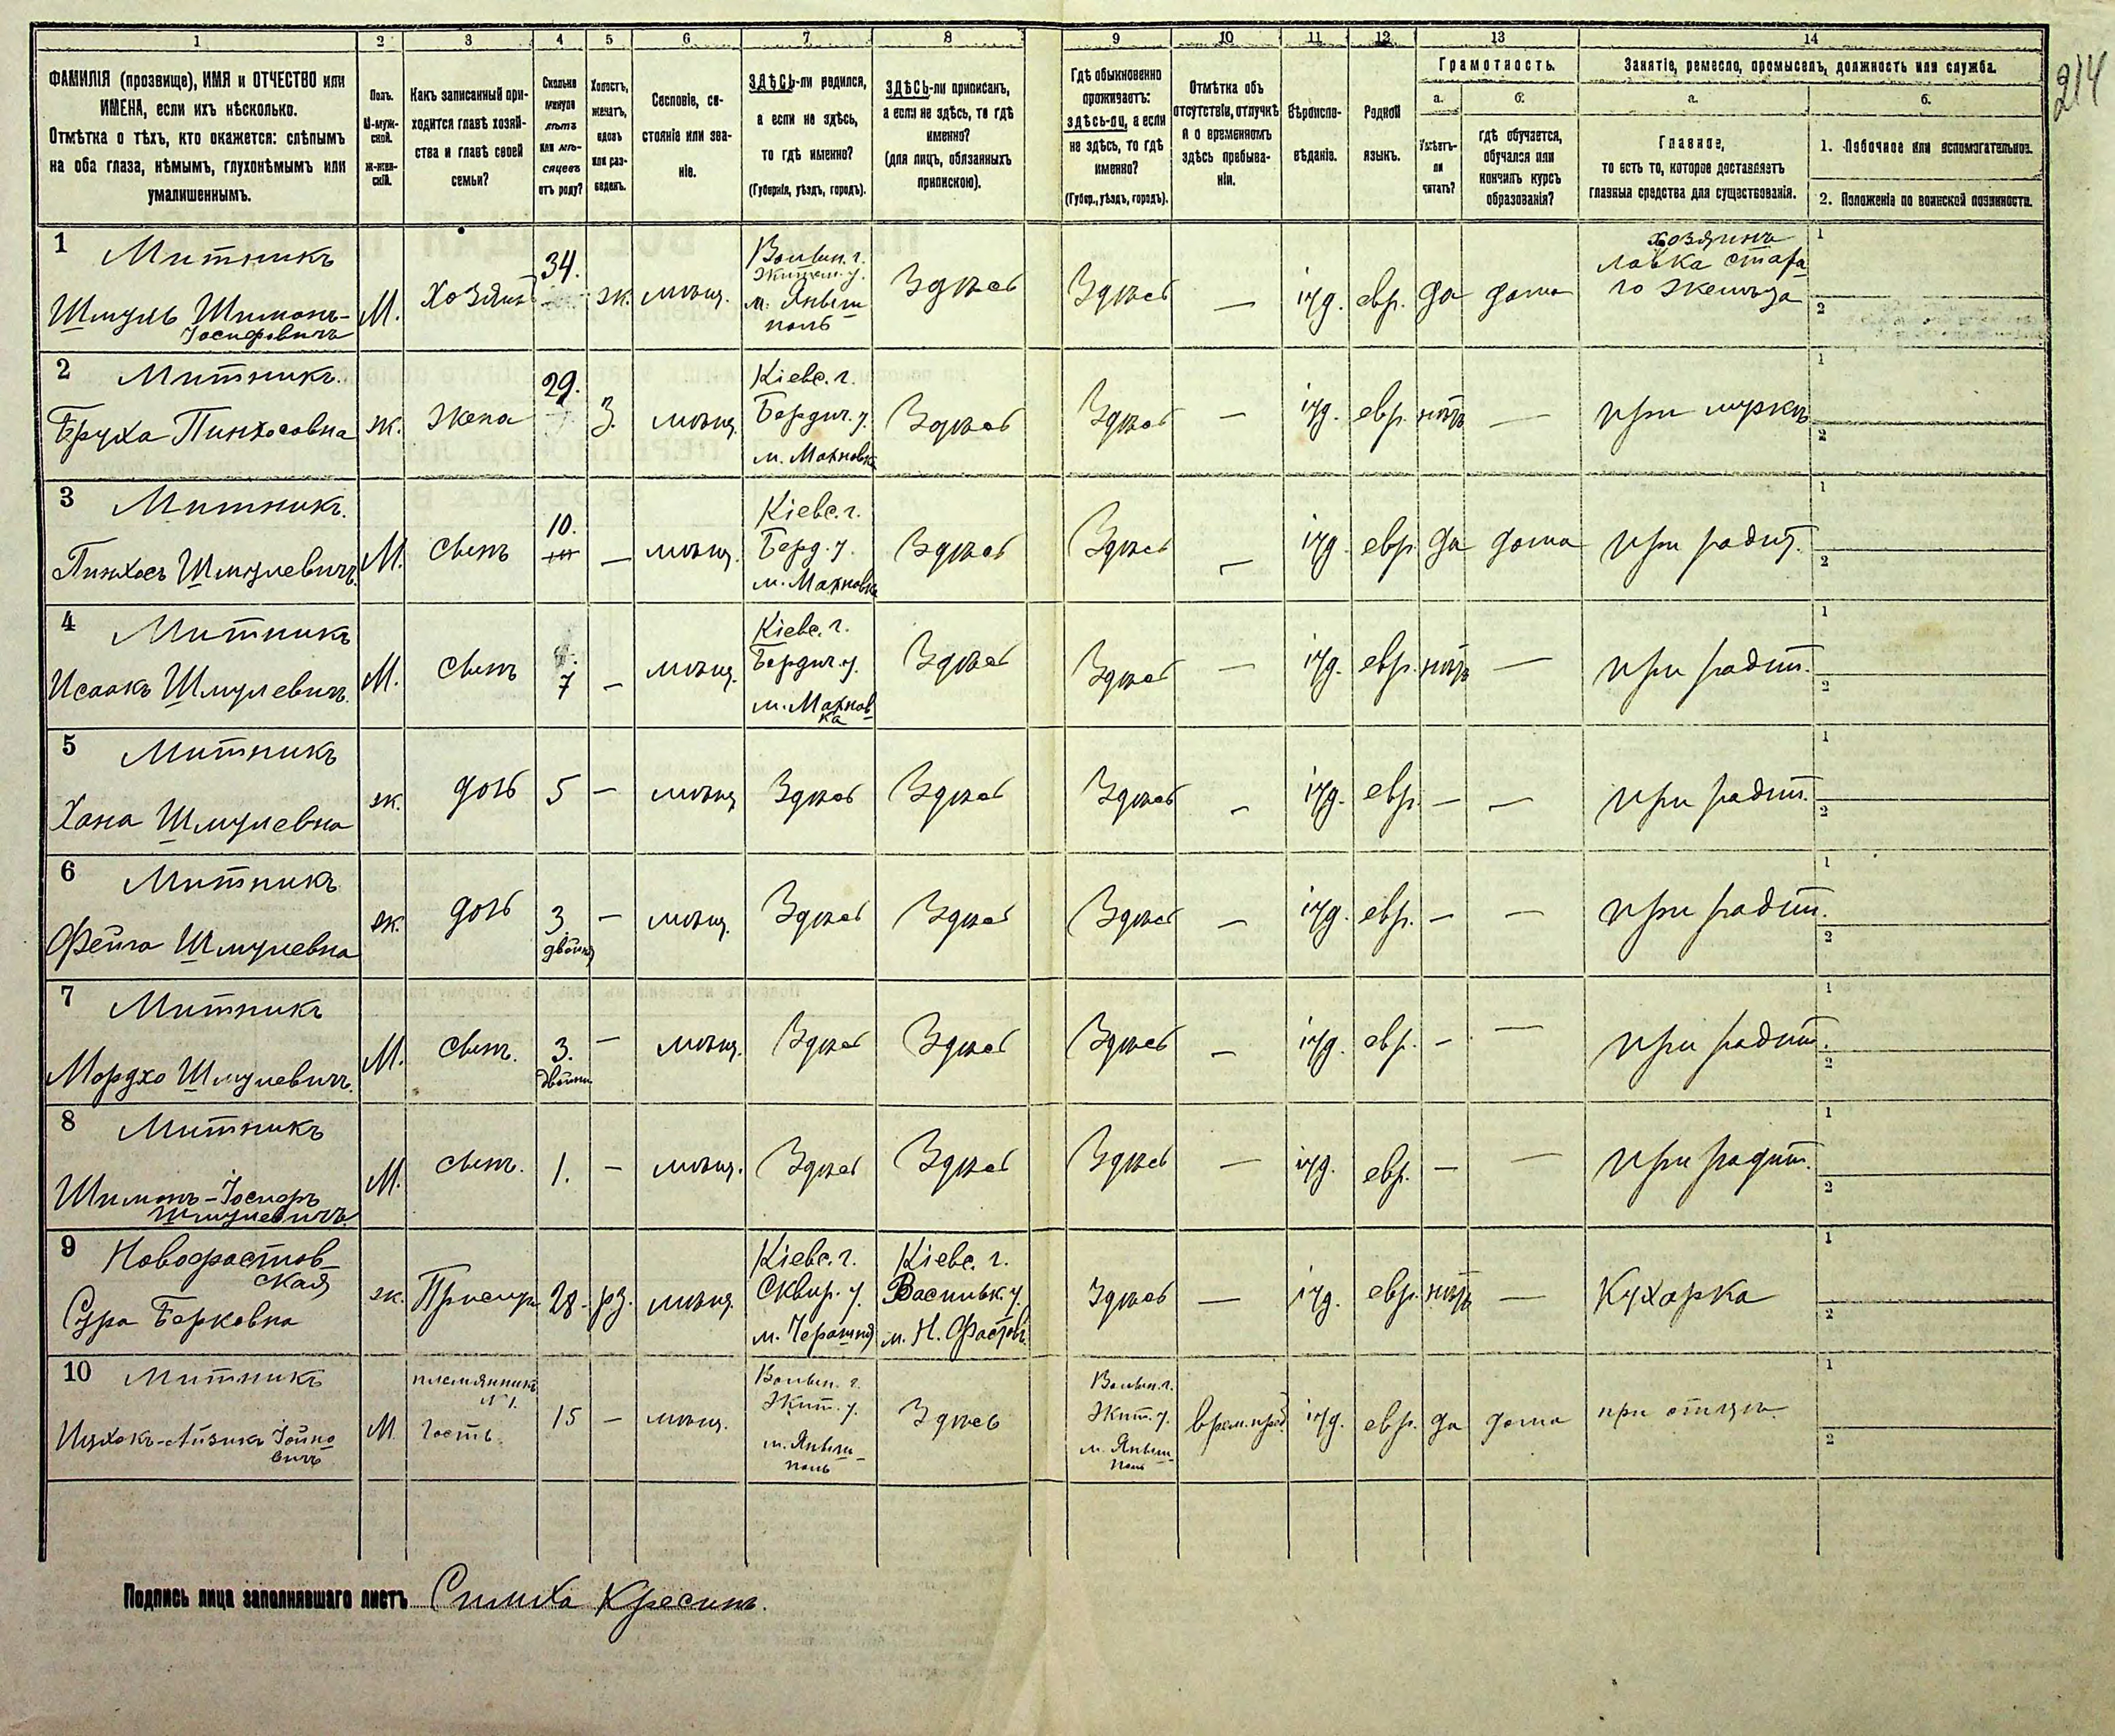 214
1 2 3 4 5 6 7 8 9 10 11 12 13 14
ФАМИЛІЯ (прозвище), ИМЯ и ОТЧЕСТВО или
ИМЕНА, если ихъ нѣсколько.
Отмѣтка о тѣхъ, кто окажется: слѣпымъ
на оба глаза, нѣмымъ, глухонѣмымъ или
умалишеннымъ.
Полъ.
М-муж-
ской.
Ж-жен-
скій.
Какъ записанный при-
ходится главѣ хозяй-
ства и главѣ своей
семьи?
Сколько
минуло
лѣтъ
или мѣ-
сяцевъ
отъ роду?
Холостъ,
женатъ,
вдовъ
или раз-
веденъ.
Сословіе, со-
стояніе или зва-
ніе.
ЗДѢСЬ-ли родился,
а если не здѣсь,
то гдѣ именно?
(Губернія, уѣздъ, городъ).
ЗДѢСЬ-ли приписанъ,
а если не здѣсь, то гдѣ
именно?
(для лицъ, обязанныхъ
припискою).
Гдѣ обыкновенно
проживаетъ:
здѣсь-ли, а если
не здѣсь, то гдѣ
именно?
(Губер., уѣздъ, городъ).
Отмѣтка объ
отсутствіи, отлучкѣ
и о временномъ
здѣсь пребыва-
ніи.
Вѣроиспо-
вѣданіе.
Родной
языкъ.
Грамотность.
а.
Умѣетъ-
ли
читать?
б.
гдѣ обучается,
обучался или
кончилъ курсъ
образованія?
Занятіе, ремесло, промыселъ, должность или служба.
а.
Главное,
то есть то, которое доставляетъ
главныя средства для существованія.
б.
1. Побочное или вспомогательное.
2. Положеніе по воинской повинности.
1 Митникъ
Шмуль Шимонъ-
Іосифовичъ
М.
Хозяинъ
34.
ж.
мѣщ.
Волын. г.
Житом. у.
м. Янъш-
поль
Здѣсь
Здѣсь
—
іуд.
евр.
да
дома
хозяинъ
лавка стара
го желѣза
1
2
2 Митникъ.
Бруха Пинхосовна
ж.
жена
29.
З.
мѣщ.
Кіевс. г.
Бердич. у.
м. Махновка
Здѣсь
Здѣсь
—
іуд.
евр.
нѣтъ
—
при мужѣ
1
2
3 Митникъ.
Пинхосъ Шмулевичъ.
М.
Сынъ
10.
—
мѣщ.
Кіевс. г.
Берд. у.
м. Махновка
Здѣсь
Здѣсь
—
іуд.
евр.
да
дома
при родит.
1
2
4 Митникъ
Исаакъ Шмулевичъ.
М.
Сынъ
7
—
мѣщ.
Кіевс. г.
Бердич. у.
м. Махнов-
ка
Здѣсь
Здѣсь
—
іуд.
евр.
нѣтъ
—
при родит.
1
2
5 Митникъ
Хана Шмулевна
ж.
дочь
5
—
мѣщ.
Здѣсь
Здѣсь
Здѣсь
—
іуд.
евр.
—
—
при родит.
1
2
6 Митникъ
Фейга Шмулевна
ж.
дочь
3
двойня
—
мѣщ.
Здѣсь
Здѣсь
Здѣсь
—
іуд.
евр.
—
—
при родит.
1
2
7 Митникъ
Мордхо Шмулевичъ.
М.
Сынъ.
3.
двойни
—
мѣщ.
Здѣсь
Здѣсь
Здѣсь
—
іуд.
евр.
—
—
при родит.
1
2
8 Митникъ
Шимонъ-Іосифъ
Шмулевичъ
М.
Сынъ.
1.
—
мѣщ.
Здѣсь
Здѣсь
Здѣсь
—
іуд.
евр.
—
—
при родит.
1
2
9 Новофастов-
ская
Сура Берковна
ж.
Прислуг.
28.
рз.
мѣщ.
Кіевс. г.
Сквир. у.
м.
Кіевс. г.
Васильк. у.
м. Н. Фастовъ
Здѣсь
—
іуд.
евр.
нѣтъ
—
Кухарка
1
2
10 Митникъ
Ицхокъ-Айзикъ Іойно
вичъ
М
племянникъ
№ 1.
Гость.
15
—
мѣщ.
Волын. г.
Жит. у.
м. Янъш-
поль
Здѣсь
Волын. г.
Жит. у.
м. Янъш-
поль
врем. преб.
іуд.
евр.
да
дома
при отцѣ.
1
2
Подпись лица заполнявшаго листъ Симха Кресинъ.